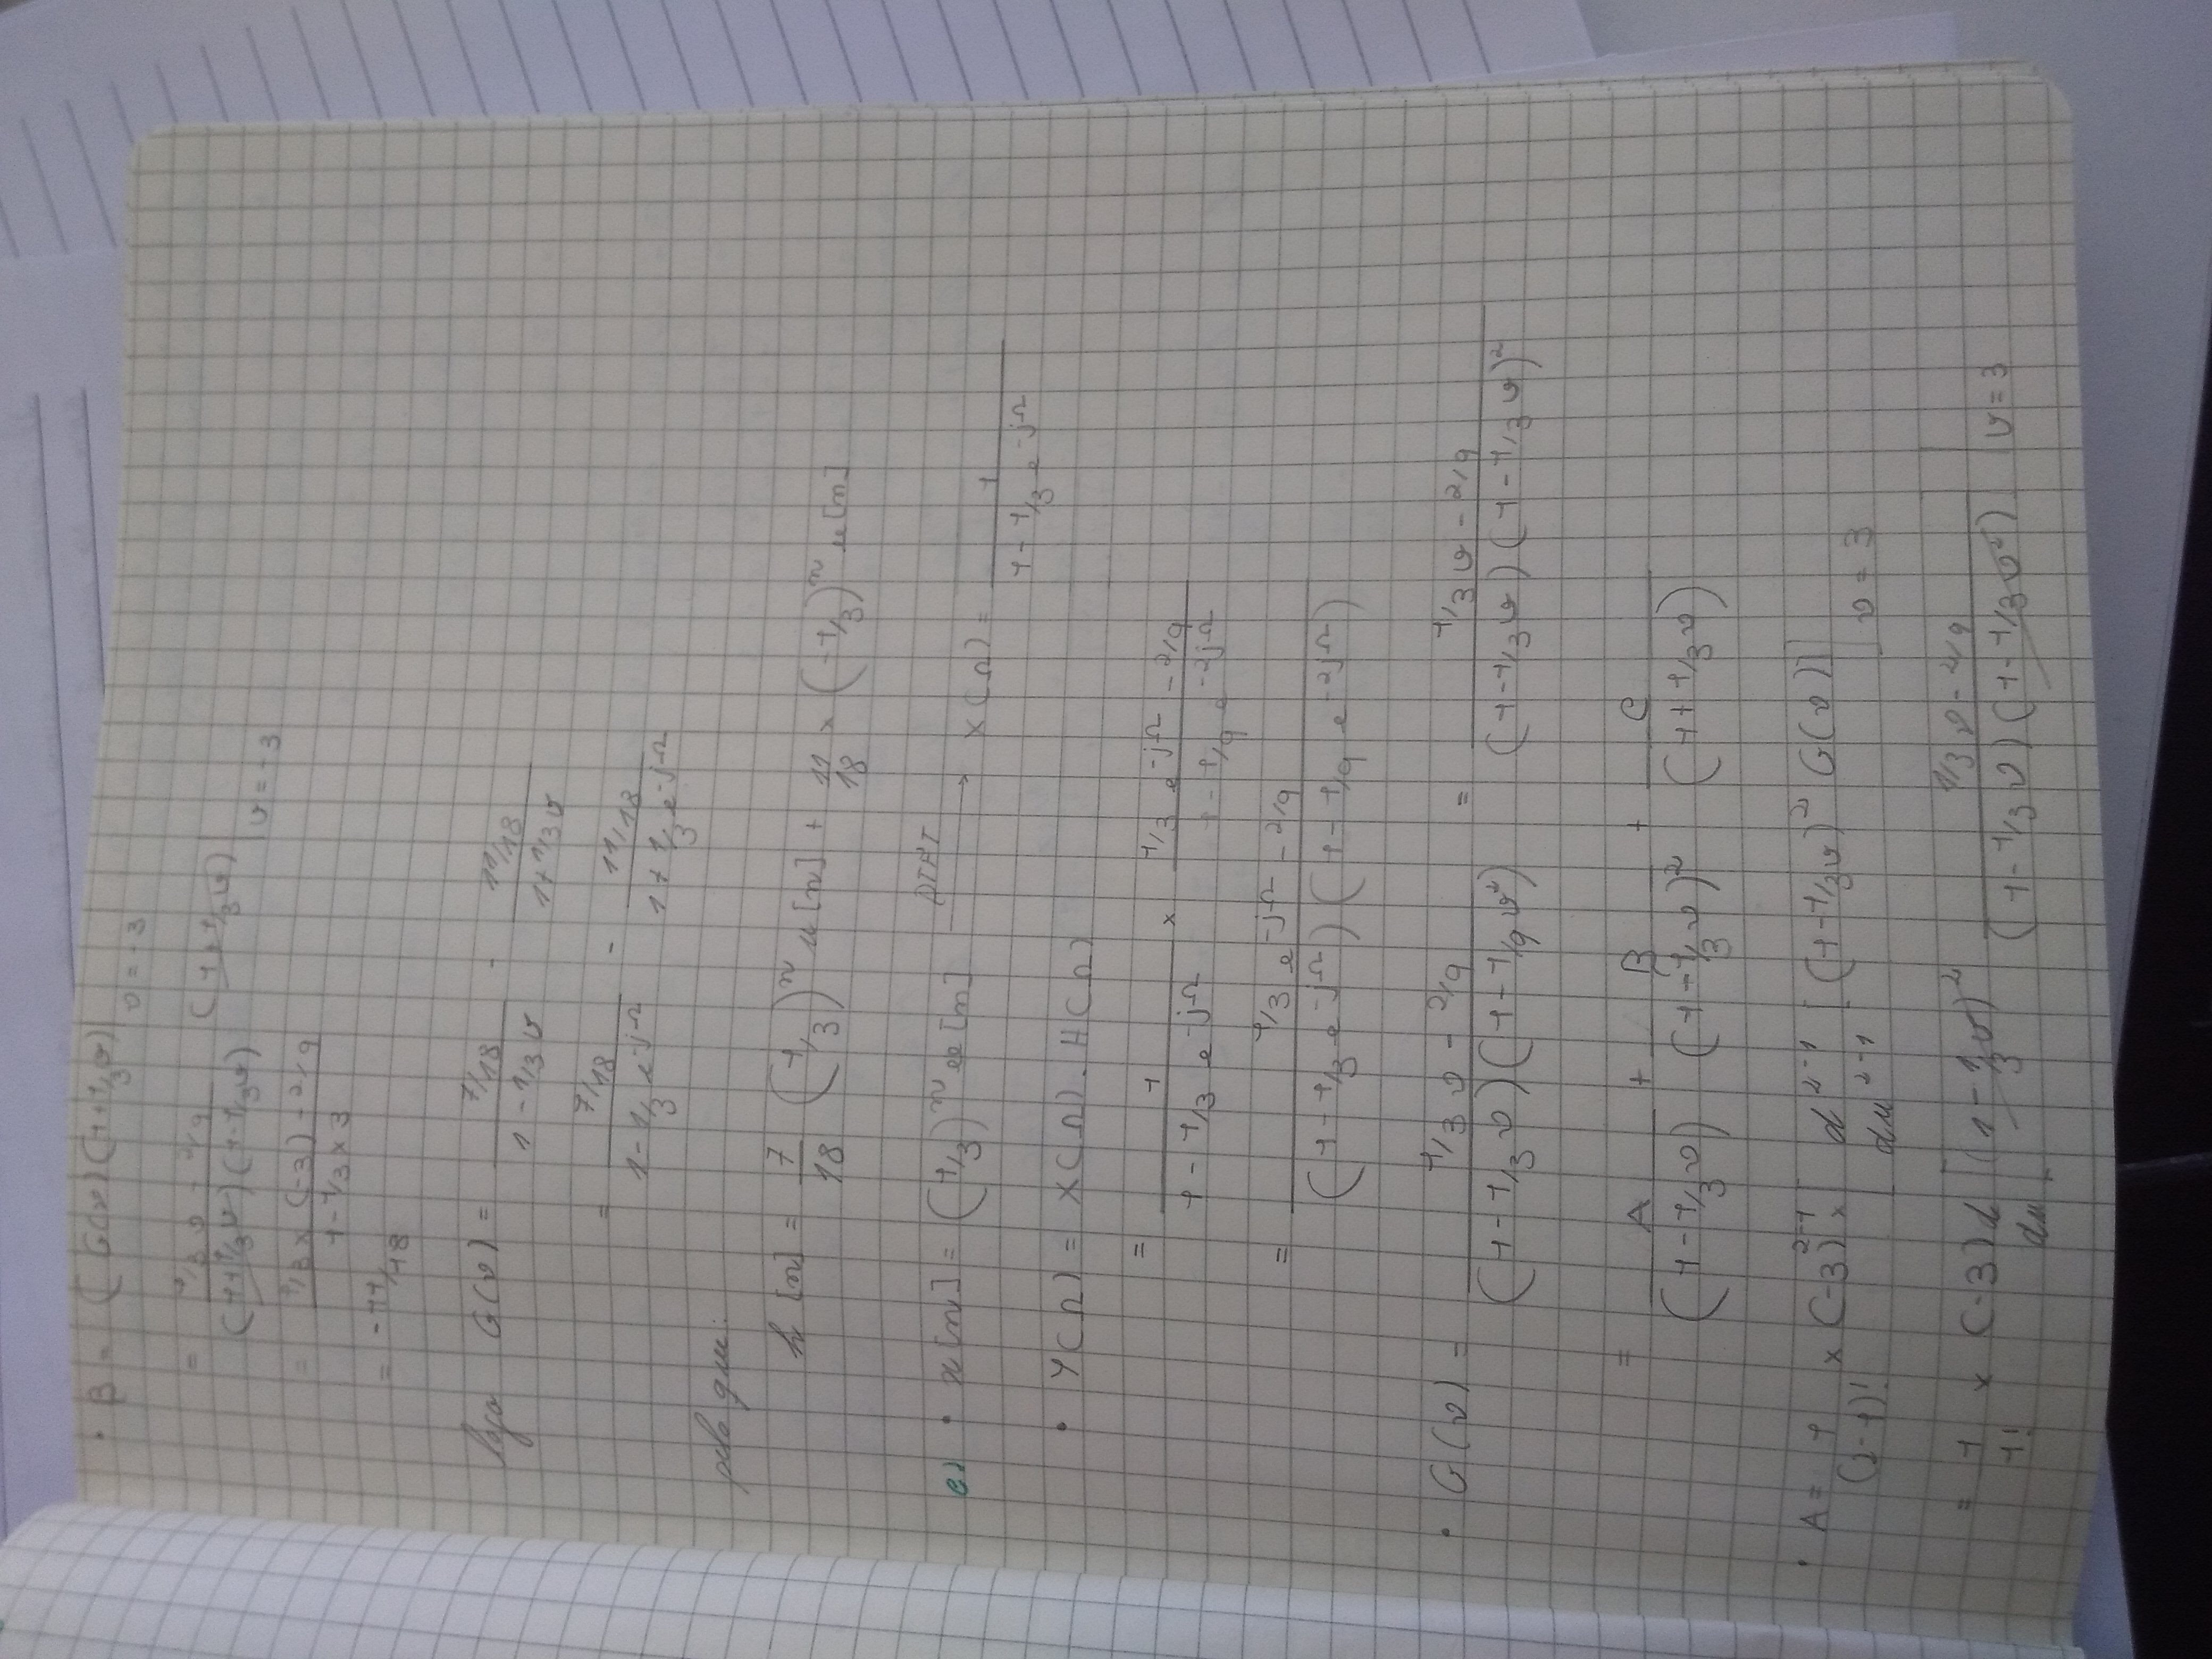 • B = ( G(v) (1+1/3 v) | v = -3
= (1/3 v - 2/9) / ((1+1/3 v)(1-1/3 v)) (1+1/3 v) | v = -3
= (1/3 × (-3) - 2/9) / (1 - 1/3 × 3)
= -11/18
logo G(v) = (7/18) / (1 - 1/3 v) - (11/18) / (1 + 1/3 v)
= (7/18) / (1 - 1/3 e^-jΩ) - (11/18) / (1 + 1/3 e^-jΩ)
pelo que:
h[n] = 7/18 (1/3)^n u[n] + 11/18 × (-1/3)^n u[n]
e) • x[n] = (1/3)^n u[n] DTFT → X(Ω) = 1 / (1 - 1/3 e^-jΩ)
• Y(Ω) = X(Ω) . H(Ω)
= 1 / (1 - 1/3 e^-jΩ) × (1/3 e^-jΩ - 2/9) / (1 - 1/9 e^-2jΩ)
= (1/3 e^-jΩ - 2/9) / ((1 - 1/3 e^-jΩ) (1 - 1/9 e^-2jΩ))
• G(v) = (1/3 v - 2/9) / ((1 - 1/3 v)(1 - 1/9 v²)) = (1/3 v - 2/9) / ((1 - 1/3 v)(1 - 1/3 v)²)
= A / (1 - 1/3 v) + B / (1 - 1/3 v)² + C / (1 + 1/3 v)
• A = 1 / (2-1)! × (-3)^2-1 × [ d^2-1 / du^2-1 [(1 - 1/3 v)² G(v)] ] v = 3
= 1 / 1! × (-3) d/du [ (1 - 1/3 v)² (1/3 v - 2/9) / ((1 - 1/3 v)(1 - 1/3 v²)) | v = 3